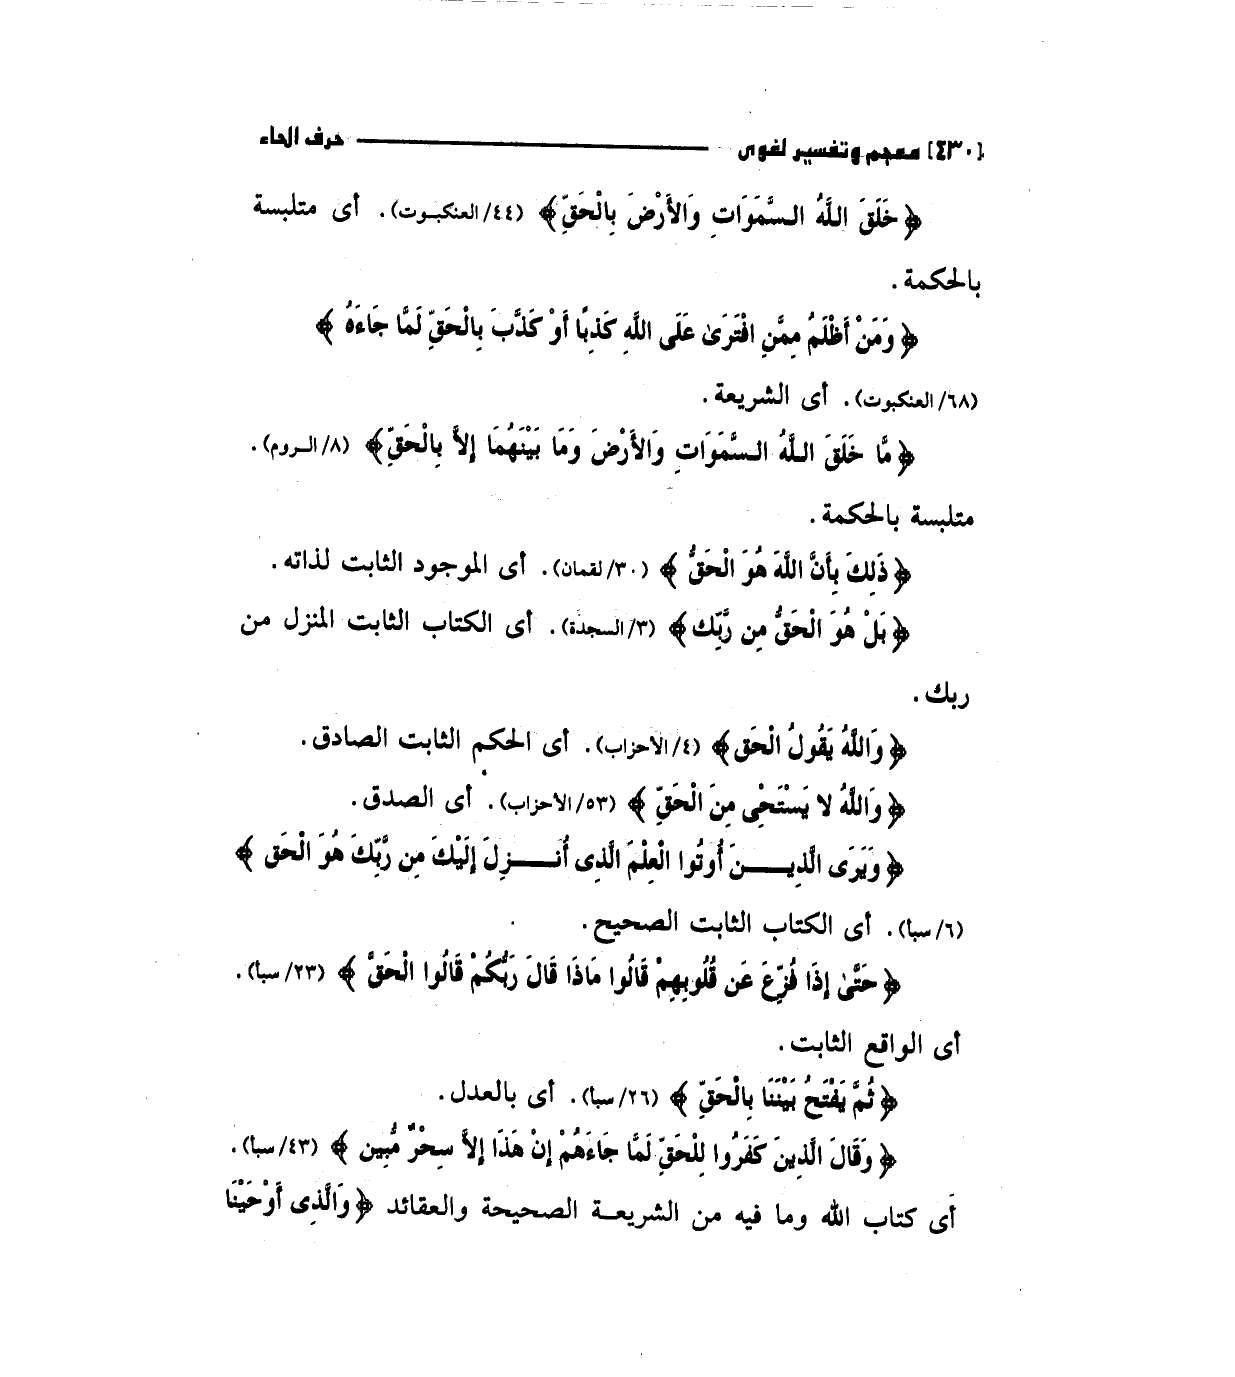 [٤٣٠] معجم وتفسير لغوى ـــــــــ حرف الحاء
﴿ خَلَقَ اللَّهُ السَّمَوَاتِ وَالأَرْضَ بِالْحَقِّ﴾ (٤٤/ العنكبوت). أى متلبسة
بالحكمة.
﴿ وَمَنْ أَظْلَمُ مِمَّنِ افْتَرَىٰ عَلَى اللَّهِ كَذِبًا أَوْ كَذَّبَ بِالْحَقِّ لَمَّا جَاءَهُ ﴾
(٦٨/ العنكبوت). أى الشريعة.
﴿ مَّا خَلَقَ اللَّهُ السَّمَوَاتِ وَالأَرْضَ وَمَا بَيْنَهُمَا إِلاَّ بِالْحَقِّ﴾ (٨/ الروم).
متلبسة بالحكمة.
﴿ ذَلِكَ بِأَنَّ اللَّهَ هُوَ الْحَقُّ ﴾ (٣٠/ لقمان). أى الموجود الثابت لذاته.
﴿ بَلْ هُوَ الْحَقُّ مِن رَّبِّك﴾ (٣/ السجدة). أى الكتاب الثابت المنزل من
ربك.
﴿ وَاللَّهُ يَقُولُ الْحَق﴾ (٤/ الأحزاب). أى الحكم الثابت الصادق.
﴿ وَاللَّهُ لا يَسْتَحْيِ مِنَ الْحَقِّ ﴾ (٥٣/ الأحزاب). أى الصدق.
﴿ وَيَرَى الَّذِيــــنَ أُوتُوا الْعِلْمَ الَّذِى أُنــــزِلَ إِلَيْكَ مِن رَّبِّكَ هُوَ الْحَق ﴾
(٦/ سبأ). أى الكتاب الثابت الصحيح.
﴿ حَتَّىٰ إِذَا فُزِّعَ عَن قُلُوبِهِمْ قَالُوا مَاذَا قَالَ رَبُّكُمْ قَالُوا الْحَقَّ ﴾ (٢٣/ سبأ).
أى الواقع الثابت.
﴿ ثُمَّ يَفْتَحُ بَيْنَنَا بِالْحَقِّ ﴾ (٢٦/ سبأ). أى بالعدل.
﴿ وَقَالَ الَّذِينَ كَفَرُوا لِلْحَقِّ لَمَّا جَاءَهُمْ إِنْ هَذَا إِلاَّ سِحْرٌ مُّبِين ﴾ (٤٣/ سبأ).
أى كتاب الله وما فيه من الشريعة الصحيحة والعقائد ﴿ وَالَّذِى أَوْحَيْنَا